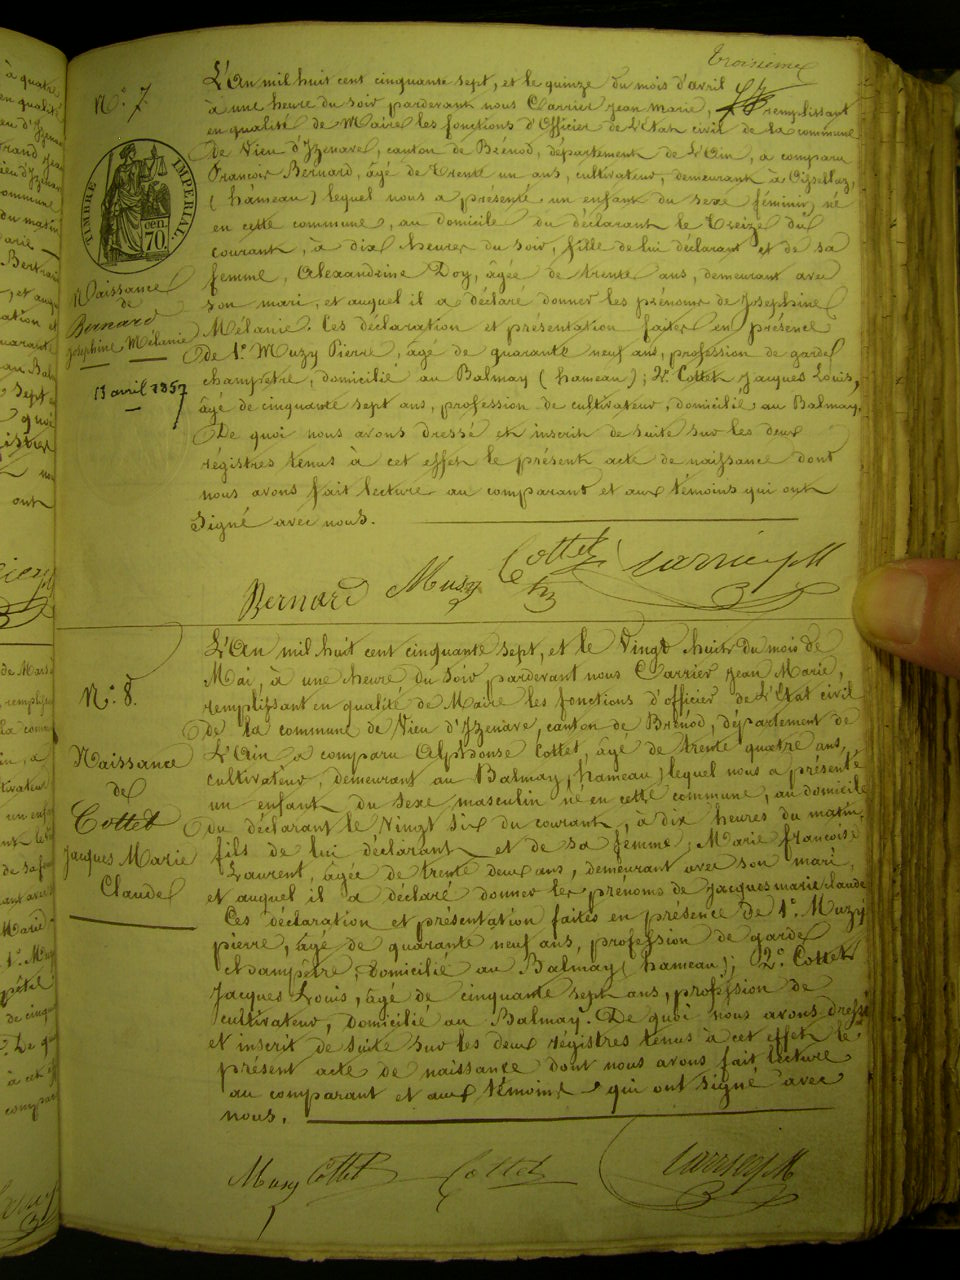 troisième
N.° 7.
TIMBRE IMPÉRIAL.
cen.
70.
Naissance
de
Bernard
Josephine Mélanie
13 avril 1857
L'An mil huit cent cinquante sept, et le quinze du mois d'avril
à une heure du soir pardevant nous Carrier jean marie, remplissant
en qualité de Maire les fonctions d'Officier de l'Etat civil de la commune
de Vieu d'Izenave, canton de Brénod, département de L'Ain, a comparu
François Bernard, âgé de trente un ans, cultivateur, demeurant à
(hâmeau) lequel nous a présenté un enfant du sexe féminin, né
en cette commune, au domicile du déclarant le treize du
courant, à dix heures du soir, fille de lui déclarant et de sa
femme, Alexandrine Roy, âgée de trente ans, demeurant avec
son mari, et auquel il a déclaré donner les prénoms de Josephine
Mélanie. Ces déclaration et présentation faites en présence
de 1.° Muzy Pierre, âgé de quarante neuf ans, profession de garde
champêtre, domicilié au Balmay (hameau); 2.° Cottet Jacques Louis,
âgé de cinquante sept ans, profession de cultivateur, domicilié au Balmay.
De quoi nous avons dressé et inscrit de suite sur les deux
régistres tenus à cet effet le présent acte de naissance dont
nous avons fait lecture au comparant et aux témoins qui ont
signé avec nous.
Bernard Muzy Cottet Carrier JM
N.° 8.
Naissance
de
Cottet
Jacques Marie
Claude
L'An mil huit cent cinquante sept, et le Vingt huit du mois de
Mai, à une heure du soir pardevant nous Carrier jean Marie,
remplissant en qualité de Maire les fonctions d'officier de l'Etat civil
de la commune de Vieu d'Izenave, canton de Brénod, département de
L'Ain a comparu Alphonse Cottet, âgé de trente quatre ans,
cultivateur, demeurant au Balmay, hameau) lequel nous a présenté
un enfant du sexe masculin né en cette commune, au domicile
du déclarant le Vingt six du courant, à dix heures du matin,
fils de lui déclarant et de sa femme, Marie françoise
Laurent, âgée de trente deux ans, demeurant avec son mari,
et auquel il a déclaré donner les prénoms de Jacques marie claude
Ces déclaration et présentation faites en présence de 1.° Muzy
pierre, âgé de quarante neuf ans, profession de garde
champêtre, domicilié au Balmay (hameau); 2.° Cottet
Jacques Louis, âgé de cinquante sept ans, profession de
cultivateur, domicilié au Balmay. De quoi nous avons dressé
et inscrit de suite sur les deux régistres tenus à cet effet le
présent acte de naissance dont nous avons fait lecture
au comparant et aux témoins qui ont signé avec
nous.
Muzy Cottet Cottet Carrier JM